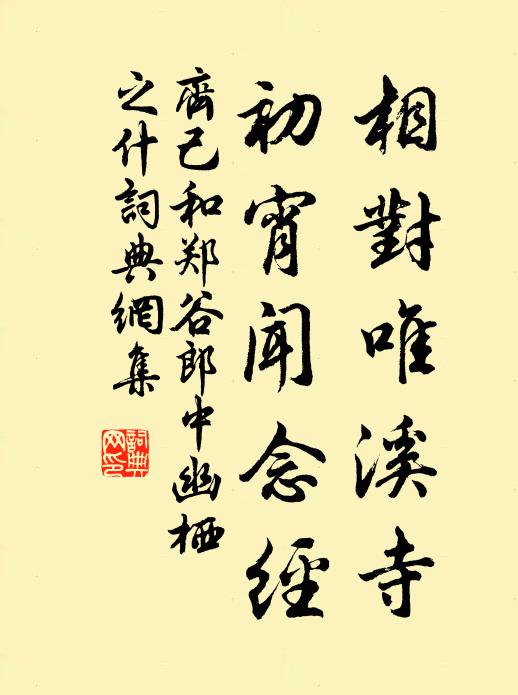 相對唯溪寺
初宵闻念經
齊己和郑谷郎中幽栖
之什詞典網集
詞典
网印